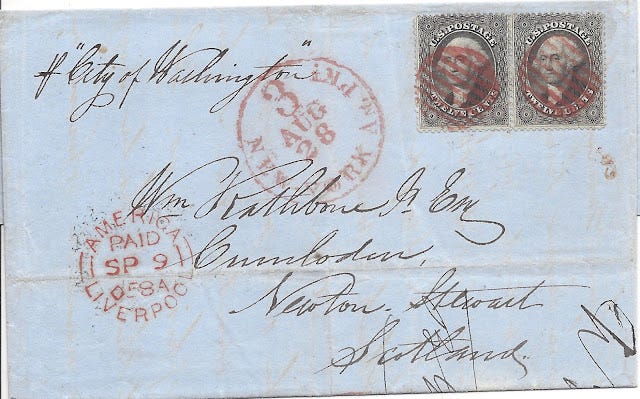 U.S. POSTAGE
TWELVE CENTS
U.S. POSTAGE
TWELVE CENTS
pr "City of Washington"
N. YORK AM. PKT.
3
AUG
28
Wm Rathbone Jr Esq
Cumloden,
Newton-Stewart
Scotland.
AMERICA
PAID
SP 9
58A
LIVERPOO